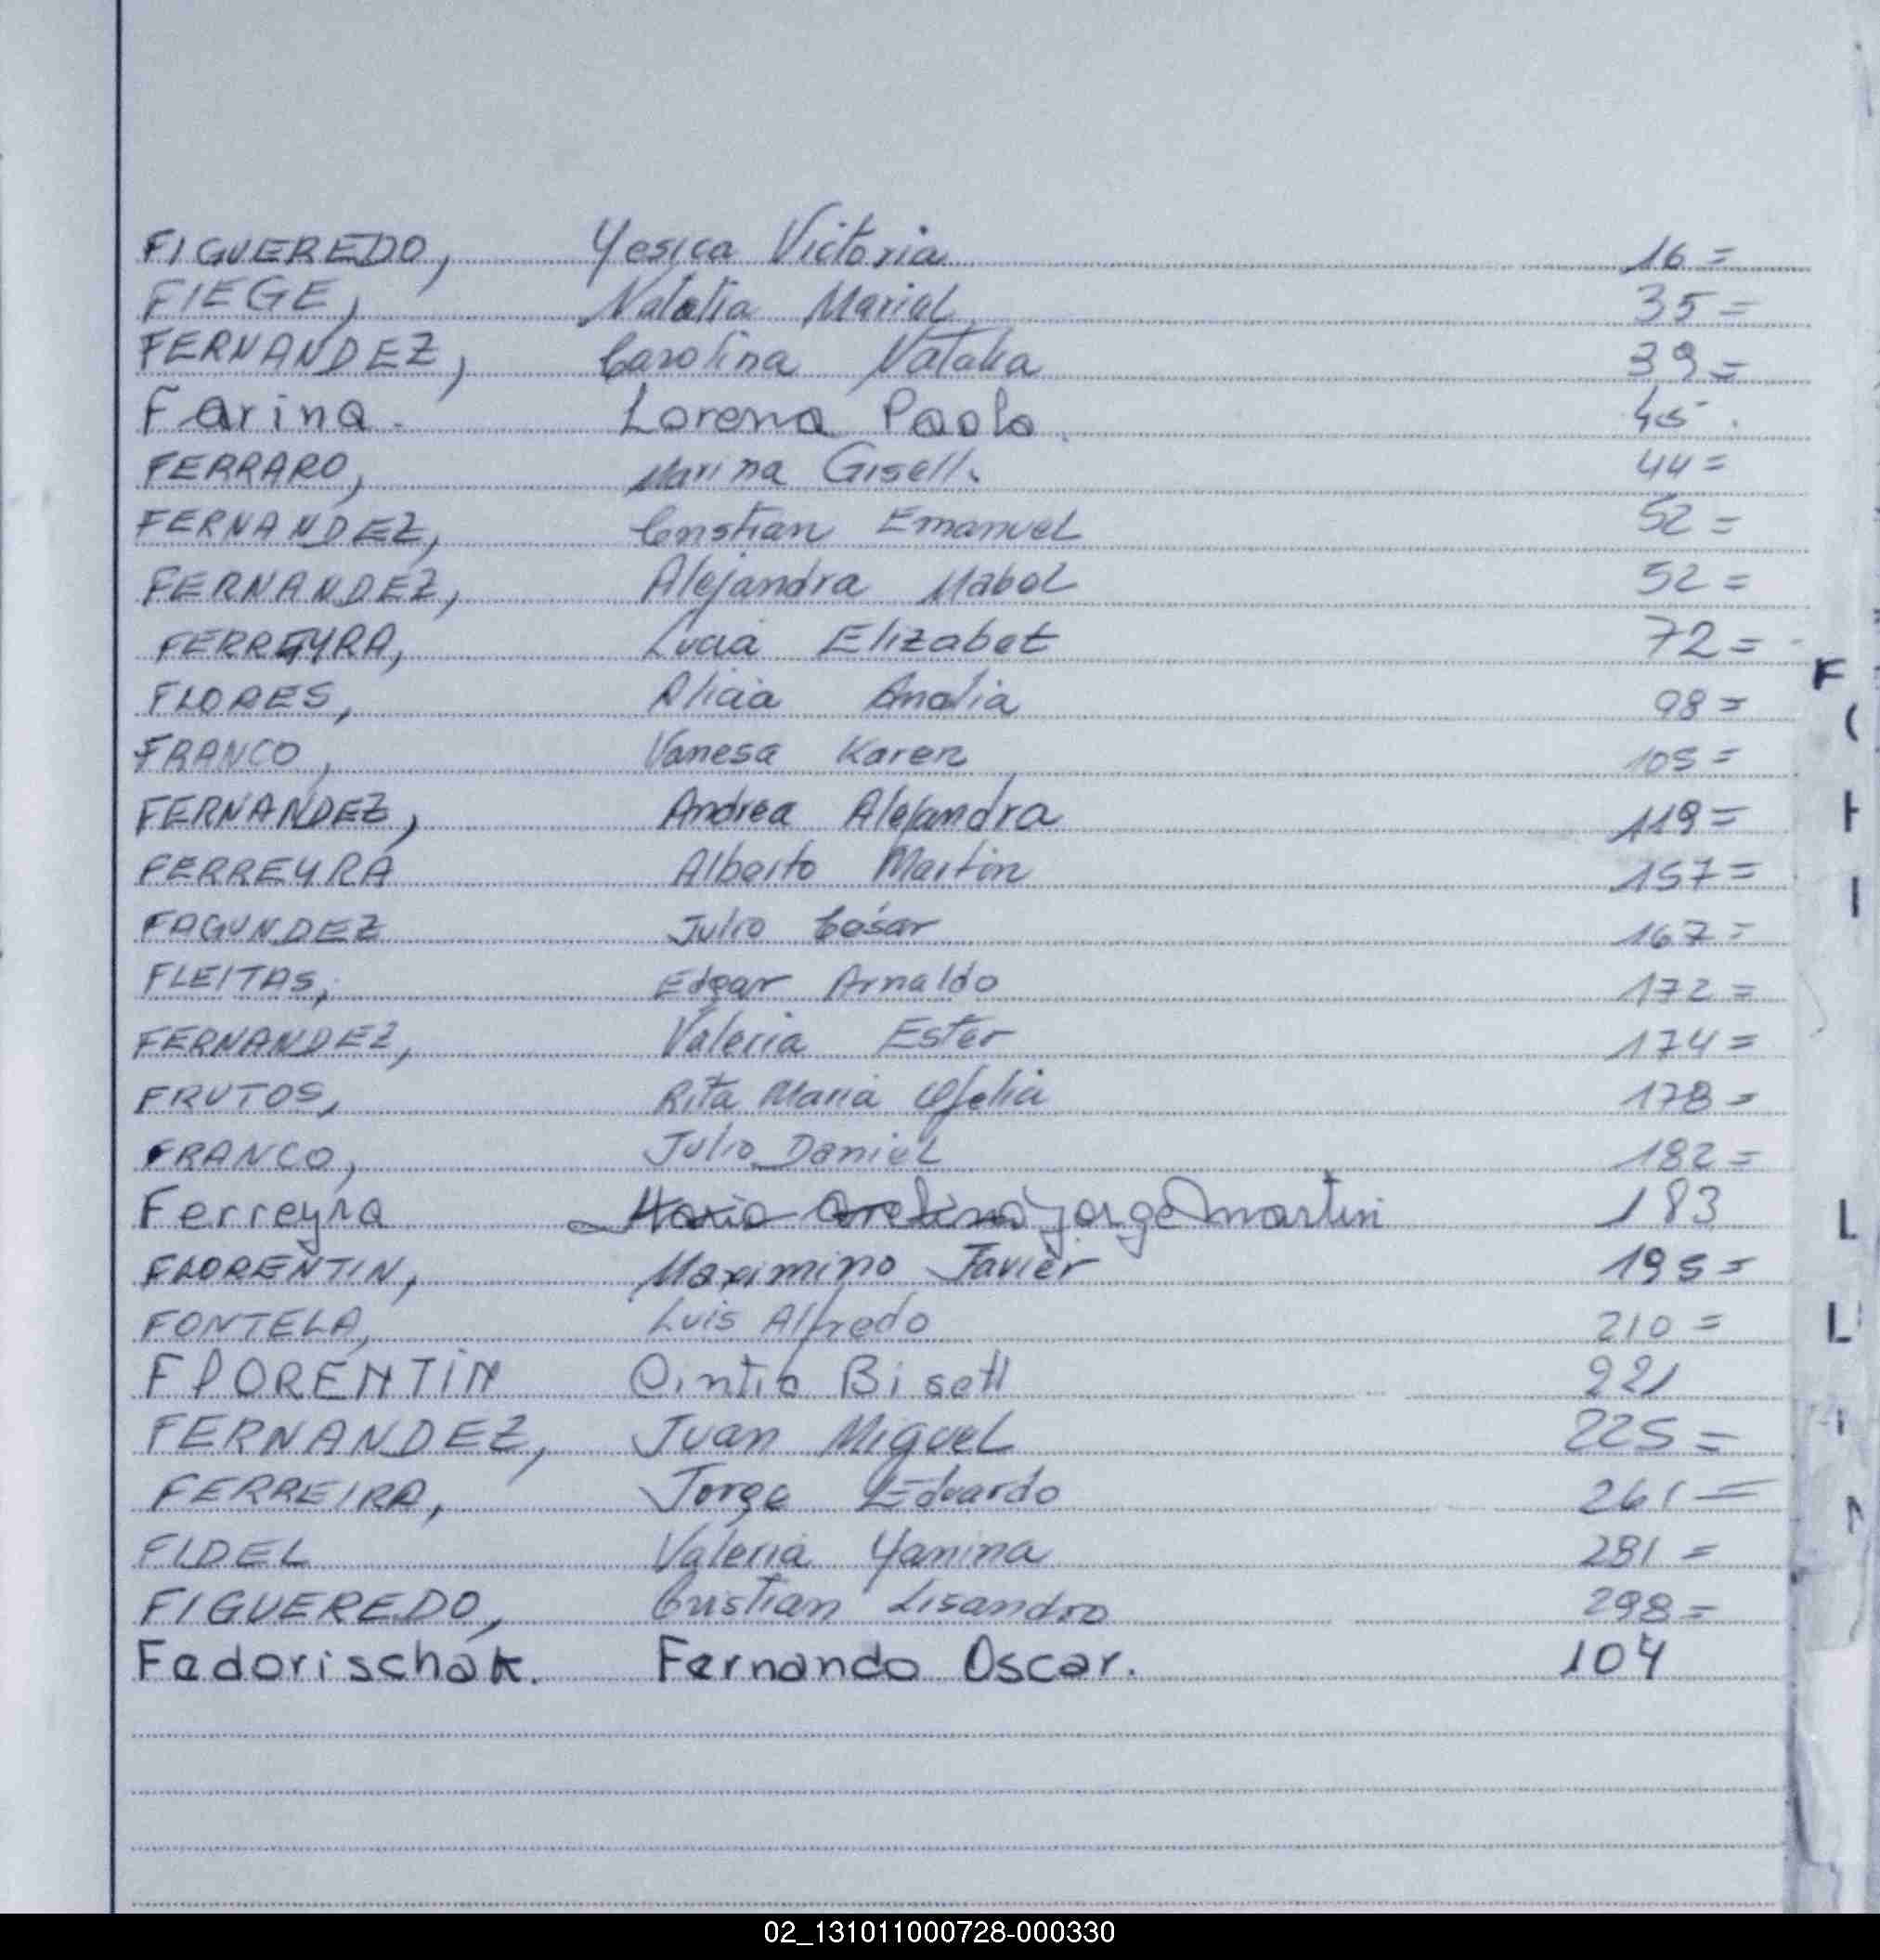 FIGUEREDO, Yesica Victoria 16=
FIEGE, Natalia Mariel 35=
FERNANDEZ, Carolina Natalia 39=
Farina. Lorena Paola. 45.
FERRARO, Marina Gisell. 44=
FERNANDEZ, Cristian Emanuel 52=
FERNANDEZ, Alejandra Mabel 52=
FERREYRA, Lucia Elizabet 72=
FLORES, Alicia Analia 98=
FRANCO, Vanesa Karen 105=
FERNANDEZ, Andrea Alejandra 119=
FERREYRA Alberto Martin 157=
FAGUNDEZ Julio César 167=
FLEITAS, Edgar Arnaldo 172=
FERNANDEZ, Valeria Ester 174=
FRUTOS, Rita Maria Ofelia 178=
FRANCO, Julio Daniel 182=
Ferreyra jorge martin 183
FLORENTIN, Maximino Javier 195=
FONTELA, Luis Alfredo 210=
FLORENTIN Cintia Bisett 221
FERNANDEZ, Juan Miguel 225=
FERREIRA, Jorge Eduardo 261=
FIDEL Valeria Yanina 281=
FIGUEREDO, Cristian Lisandro 298=
Fedorischak. Fernando Oscar. 104
02_131011000728-000330